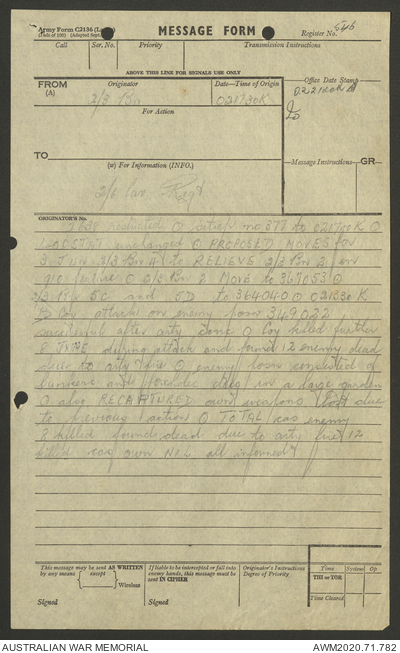 Army Form C2136
MESSAGE FORM
Register No. 546
Call Ser. No. Priority Transmission Instructions
ABOVE THIS LINE FOR SIGNALS USE ONLY
FROM (A) Originator Date—Time of Origin Office Date Stamp
2/3 Bn 021730K
For Action
TO
Message Instructions GR
(w) For Information (INFO.)
2/6 Cav Regt
ORIGINATOR'S No.
sitrep no to 021700K O
unchanged O PROPOSED MOVES for
3 JUNE 2/3 Bn to RELIEVE 2/3 Bn on
feature O Move to 367053 O
2/3 Bn and to 364040 O 021530 K
Coy attack on enemy posn 349022
successful after arty conc O Coy killed further
8 JAPS during attack and found 12 enemy dead
due to arty fire O enemy posn consisted of
bunkers and in a large garden
O also RECAPTURED own weapons lost due
to previous action O TOTAL cas enemy
8 killed found dead due to arty fire 12
killed cas own NIL all informed
This message may be sent AS WRITTEN
by any means except Wireless
If liable to be intercepted or fall into
enemy hands, this message must be
sent IN CIPHER
Originator's Instructions
Degree of Priority
Time System Op
THI or TOR
Time Cleared
Signed Signed
AUSTRALIAN WAR MEMORIAL AWM2020.71.782